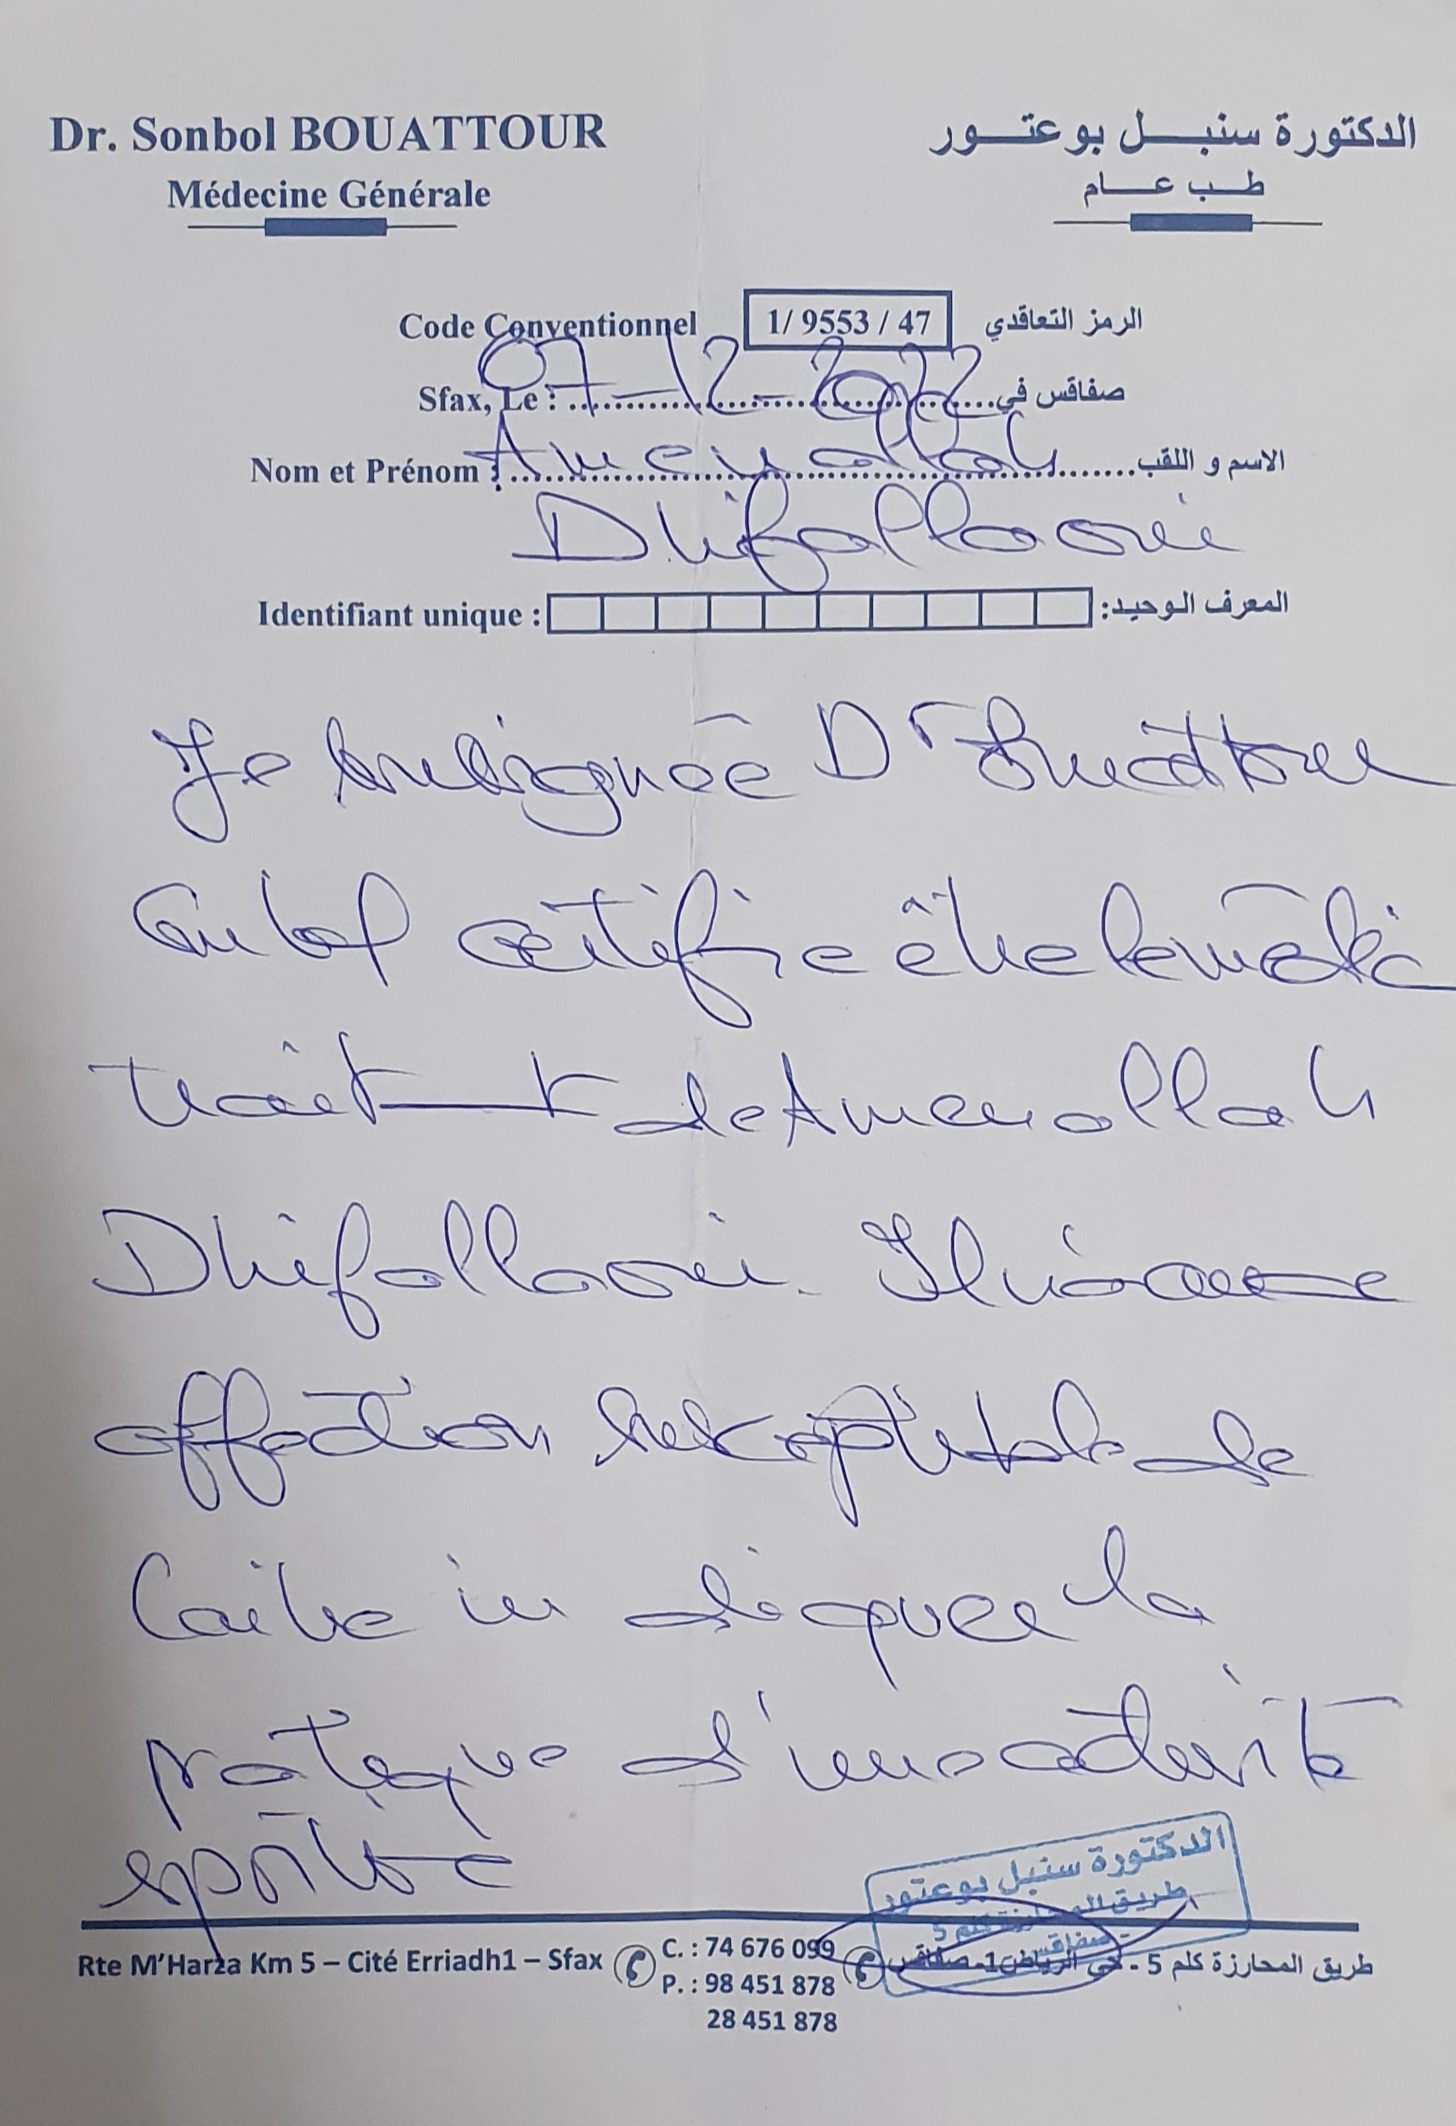 Dr. Sonbol BOUATTOUR
الدكتورة سنبل بوعتور
Médecine Générale
طب عام
Code Conventionnel 1/ 9553 / 47 الرمز التعاقدي
Sfax, Le : 07-12-2022 صفاقس في
Nom et Prénom : Amenallah الاسم و اللقب
Dhifallaoui
Identifiant unique : المعرف الوحيد:
Je soussignée Dr Bouattour
Sonbol certifie être le médecin
traitant de Amenallah
Dhifallaoui. Il n'a aucune
affection susceptible de
contre indiquer la
pratique d'une activité
sportive
الدكتورة سنبل بوعتور
طريق المحارزة كلم 5
صفاقس
Rte M'Harza Km 5 – Cité Erriadh1 – Sfax C. : 74 676 099 طريق المحارزة كلم 5 - حي الرياض 1- صفاقس
P. : 98 451 878
28 451 878